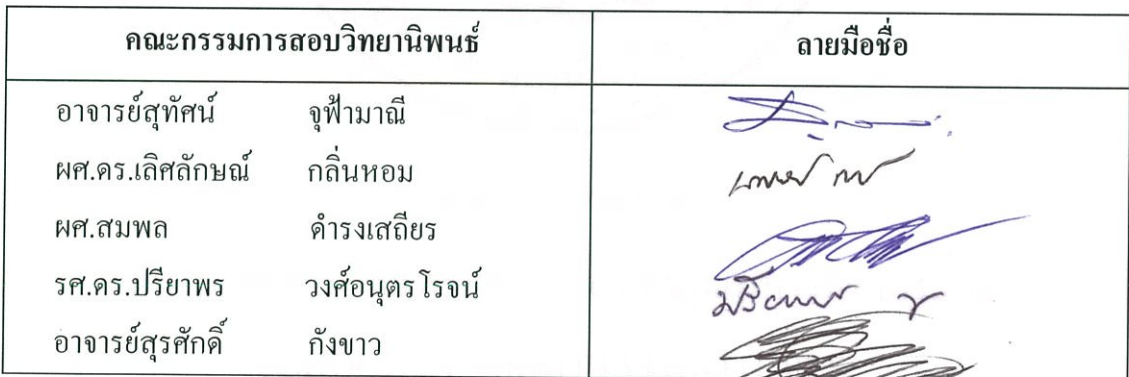 คณะกรรมการสอบวิทยานิพนธ์ ลายมือชื่อ
อาจารย์สุทัศน์ จุฬามาณี
ผศ.ดร.เลิศลักษณ์ กลิ่นหอม
ผศ.สมพล ดำรงเสถียร
รศ.ดร.ปรียาพร วงศ์อนุตรโรจน์
อาจารย์สุรศักดิ์ กังขาว